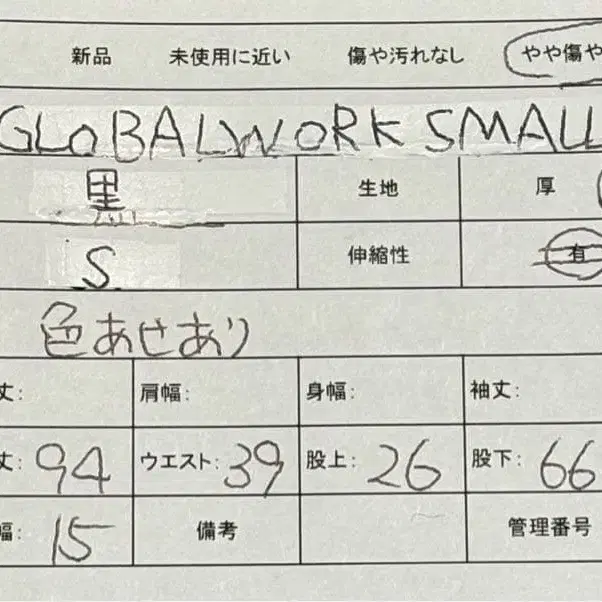 新品 未使用に近い 傷や汚れなし やや傷や
GLOBALWORK SMALL
黒 生地 厚
S 伸縮性 有
色あせあり
丈: 肩幅: 身幅: 袖丈:
丈: 94 ウエスト: 39 股上: 26 股下: 66
幅: 15 備考 管理番号